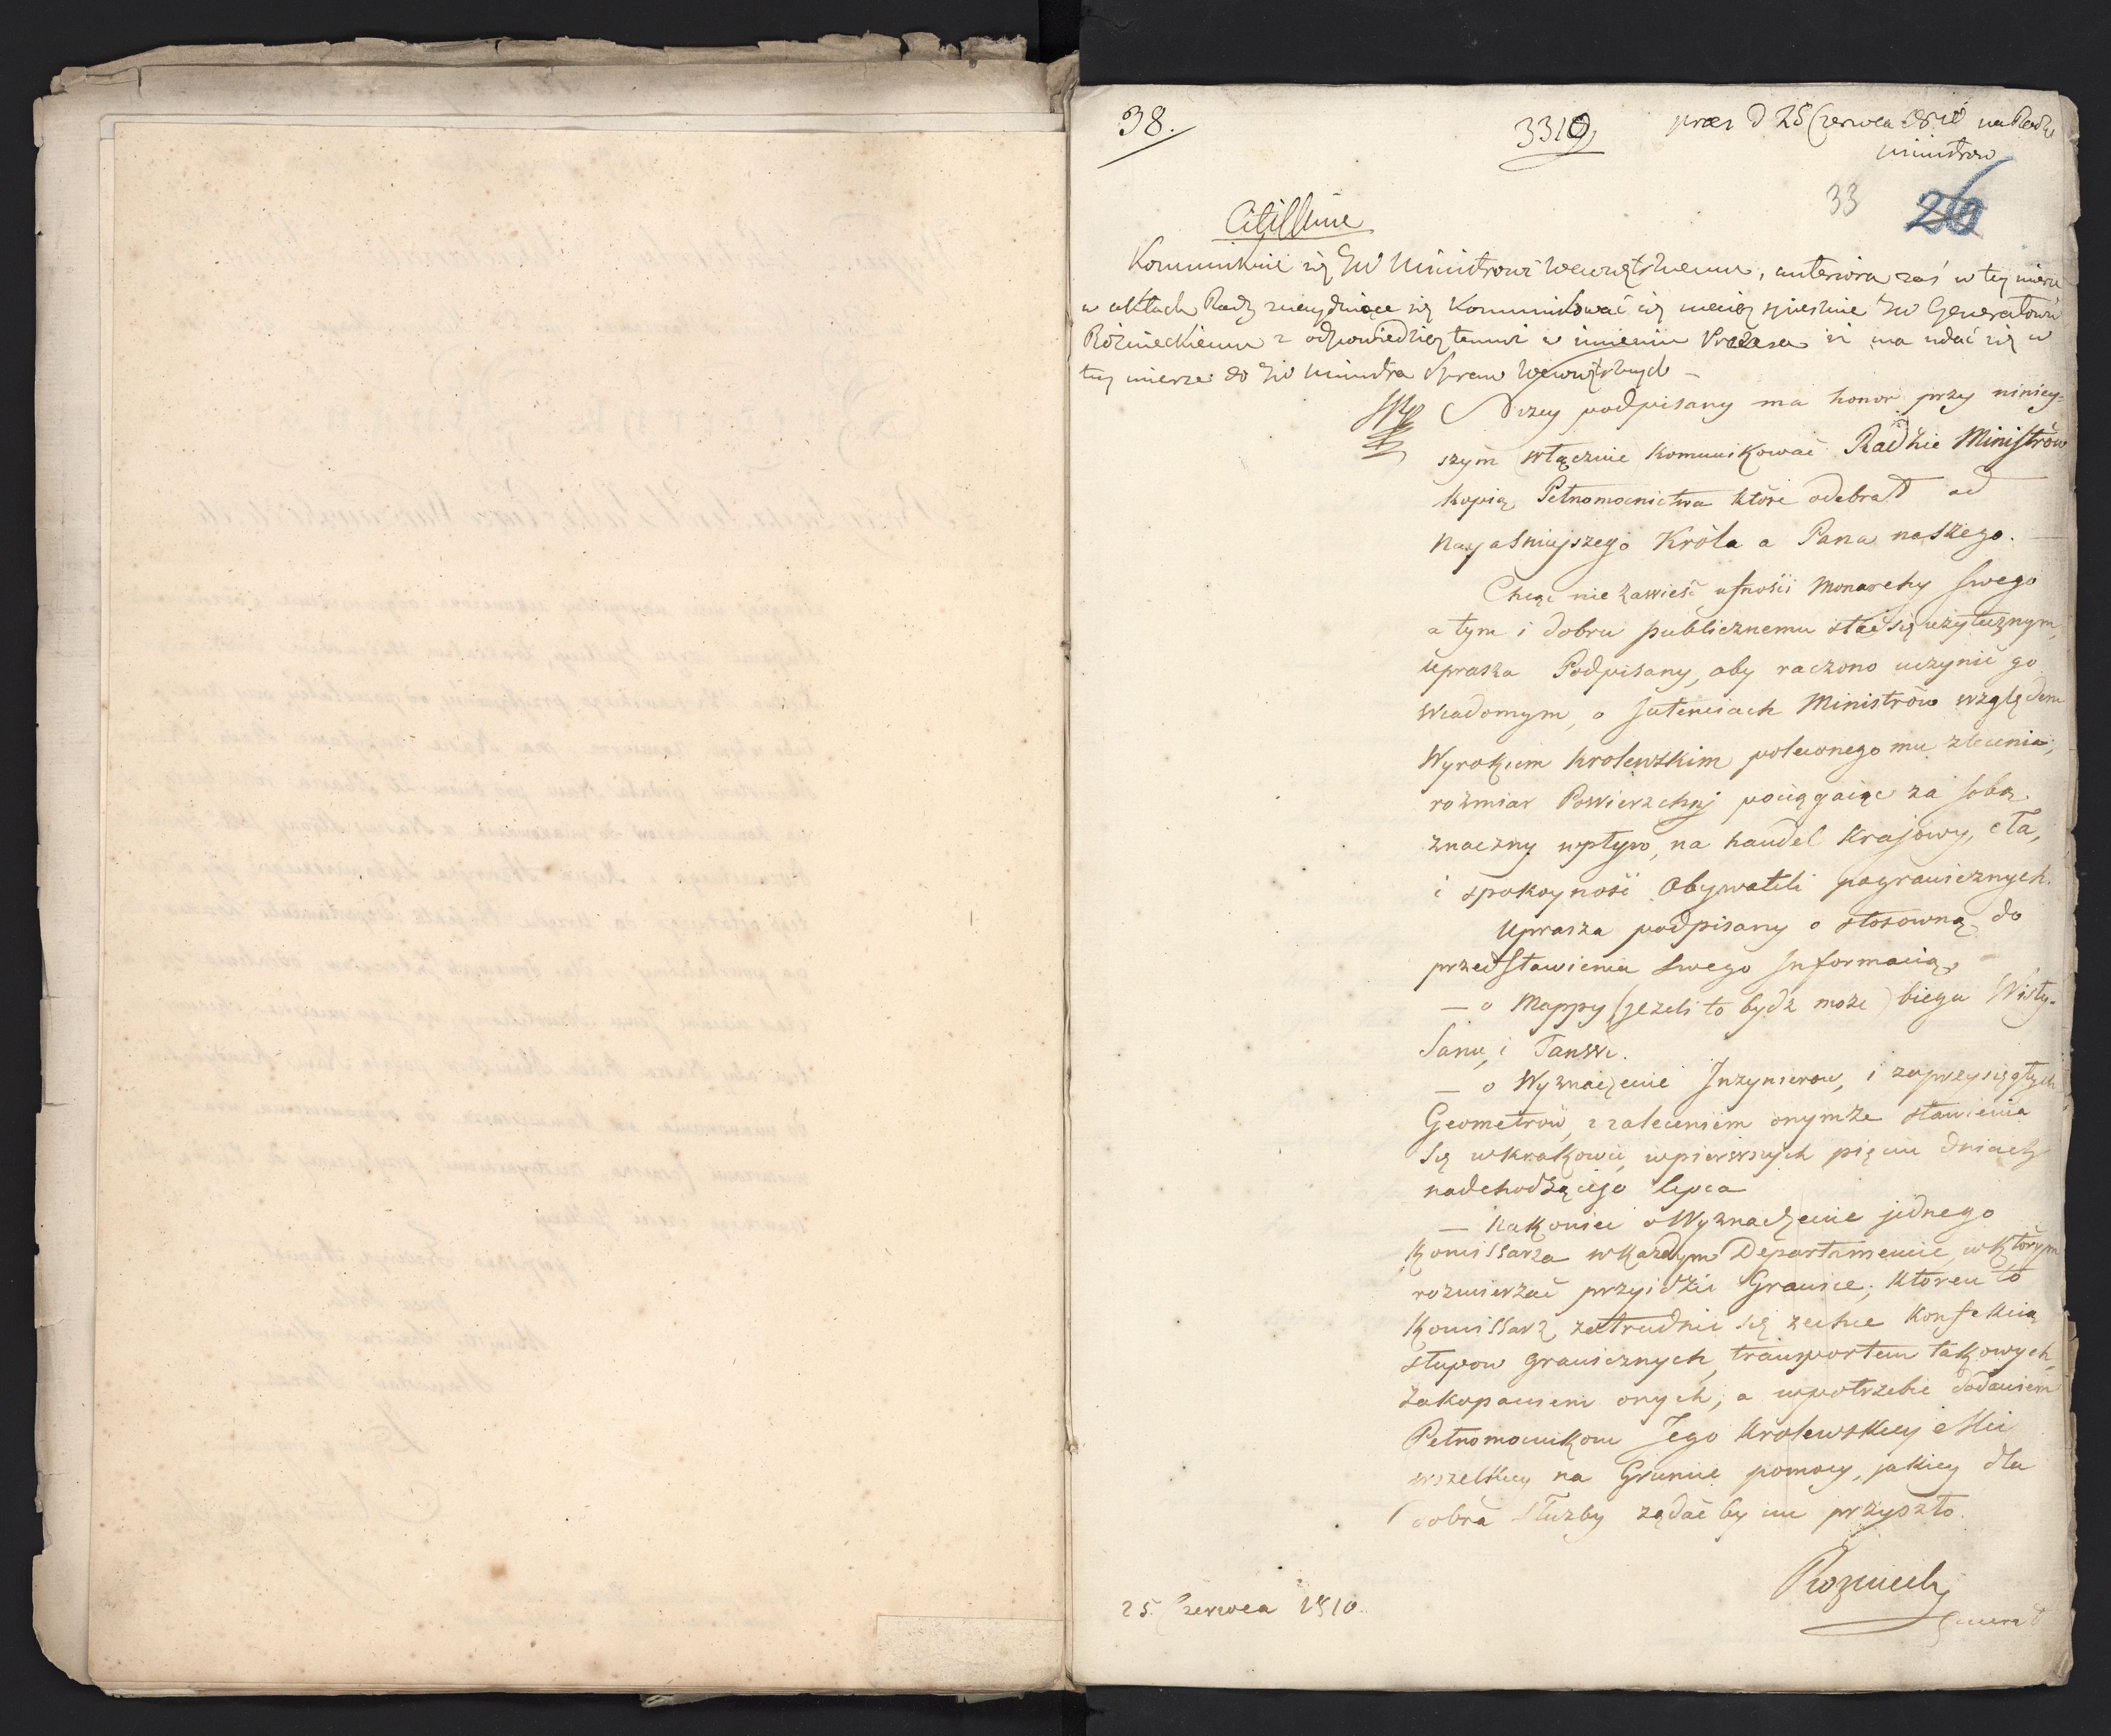 38.
3310
praes d 25 Czerwca 1810 na Radzie
Ministrow
33
26
Citissime
Kommunikuie się JW Ministrowi Wewnętrznemu, anteriora zaś w tey mierze
w aktach Rady znayduiące się kommunikować iak nayspieszniie JW Generałowi
Rożnieckiemu z odpowiedzią temuż w imieniu Prezesa iż ma udać się w
tey mierze do JW Ministra Spraw Wewnętrznych —
Niżey podpisany ma honor przy niniey-
szym włącznie kommunikować Radzie Ministrów
kopią Pełnomocnictwa które odebrał od
Nayjaśnieyszego Króla a Pana naszego. —
Chcąc nie zawieść ufności Monarchy swego
a tym i dobru publicznemu stać się użytecznym,
uprasza Podpisany, aby raczono uczynić go
wiadomym, o Intenciach Ministrów względem
Wyrokiem Krolewskim poleconego mu zlecenia,
rozmiar Powierzchny pociągaiąc za sobą
znaczny wpływ, na handel krajowy, cła,
i spokoyność Obywateli pogranicznych.
Uprasza podpisany o stosowną do
przedstawienia swego Informacią,
— o Mappy (jeżeli to bydź może) biegu Wisły
Sanu, i Tanwi.
— o Wyznaczenie Inzynierow, i zaprzysięgłych
Geometrów, z zaleceniem onymże stawienia
się w Krakowie, w pierwszych pięciu dniach
nadchodzącego lipca
— Nakoniec o Wyznaczenie jednego
Komissarza w każdym Departamencie, w którym
rozmierzać przyidzie Granice; któren to
Komissarz zatrudnić się zechce konfekcią
słupow granicznych, transportem takowych,
zakopaniem onych, a w potrzebie dodaniem
Pełnomocnikom Jego Krolewskiey Mci
wszelkiey na Gruncie pomocy, jakiey dla
dobra służby żądać by im przyszło.
Rozniecki
Generał
25. Czerwca 1810.